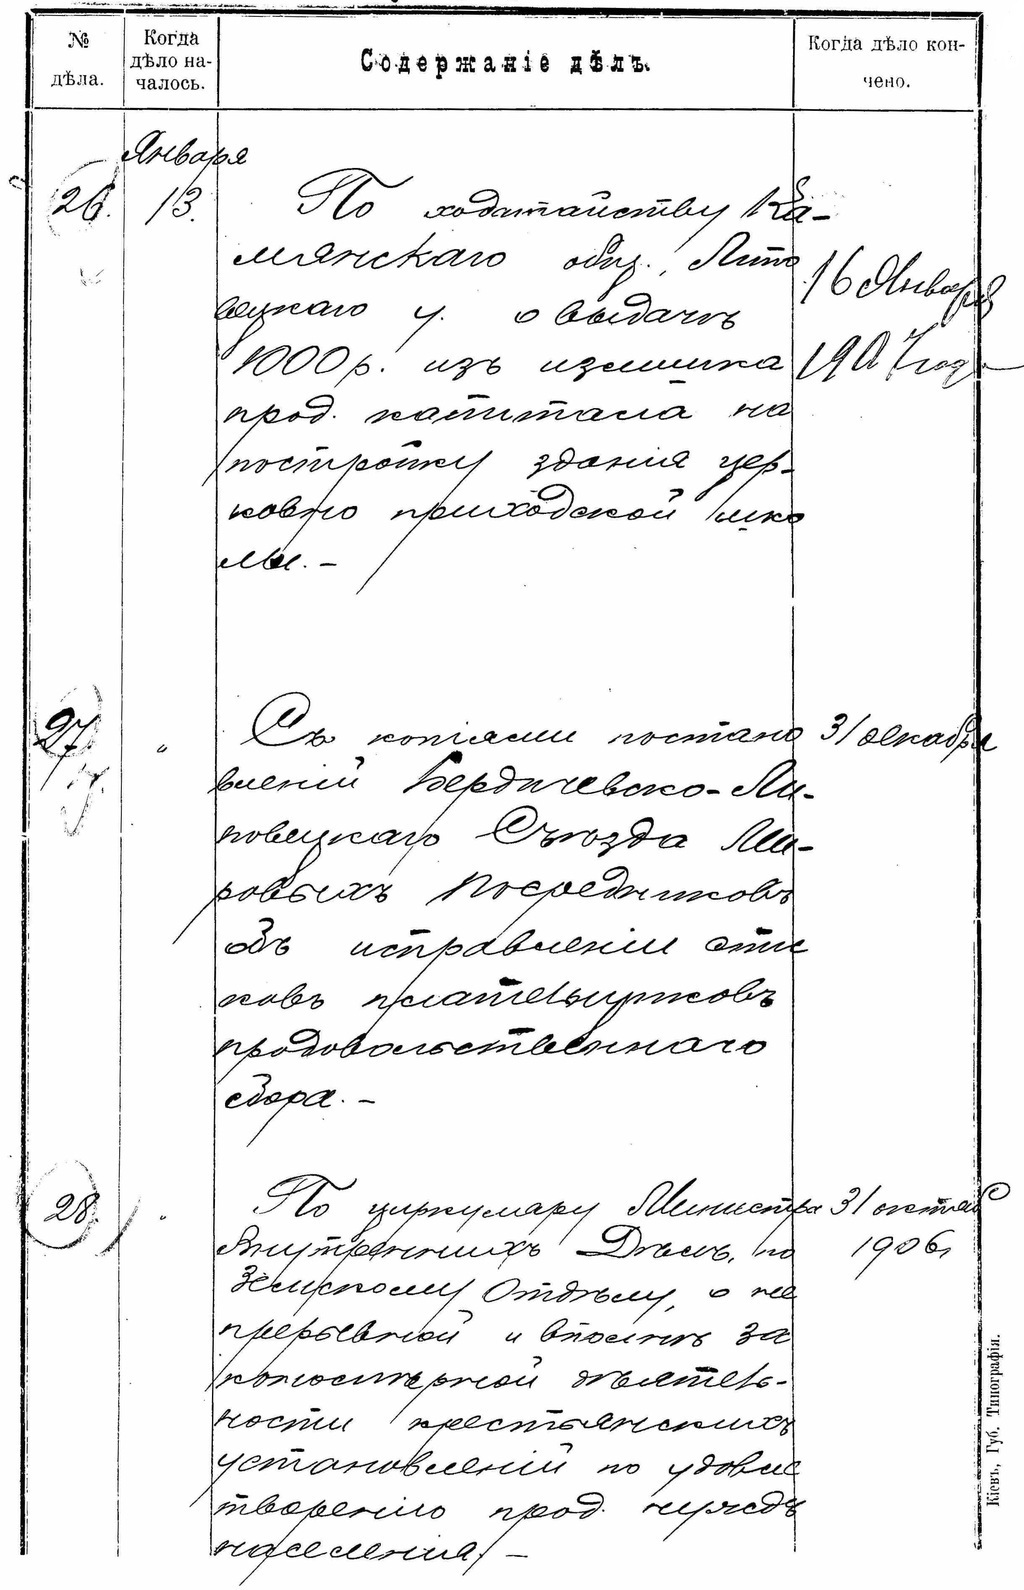 № дѣла.
Когда дѣло началось.
Содержаніе дѣлъ.
Когда дѣло кончено.
Января
26. 13. По ходатайству Ка-
мянскаго общ., Липо
вецкаго у. о выдачѣ
1000 р. изъ излишка
прод. капитала на
постройку зданія цер-
ковно приходской шко
лы. –
16 Января
1907 года
27. " Съ копіями постано
вленій Бердичевско-Ли-
повецкаго Съѣзда Ми-
ровыхъ Посредниковъ
объ исправленіи спис
ковъ плательщиковъ
продовольственнаго
сбора. –
31 декабря
28. " По циркуляру Министра
Внутреннихъ Дѣлъ, по
Земскому Отдѣлу, о не
прерывной и вполнѣ за
кономѣрной дѣятель-
ности крестьянскихъ
установленій по удовле
творенію прод. нуждъ
населенія. –
31 октяб
1906 г.
Кіевъ, Губ. Типографія.